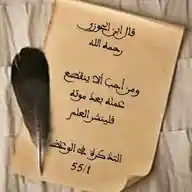 قال ابن الجوزي
رحمه الله
ومن أحب ألا ينقطع
عمله بعد موته
فلينشر العلم
التذكرة في الوعظ
55/1